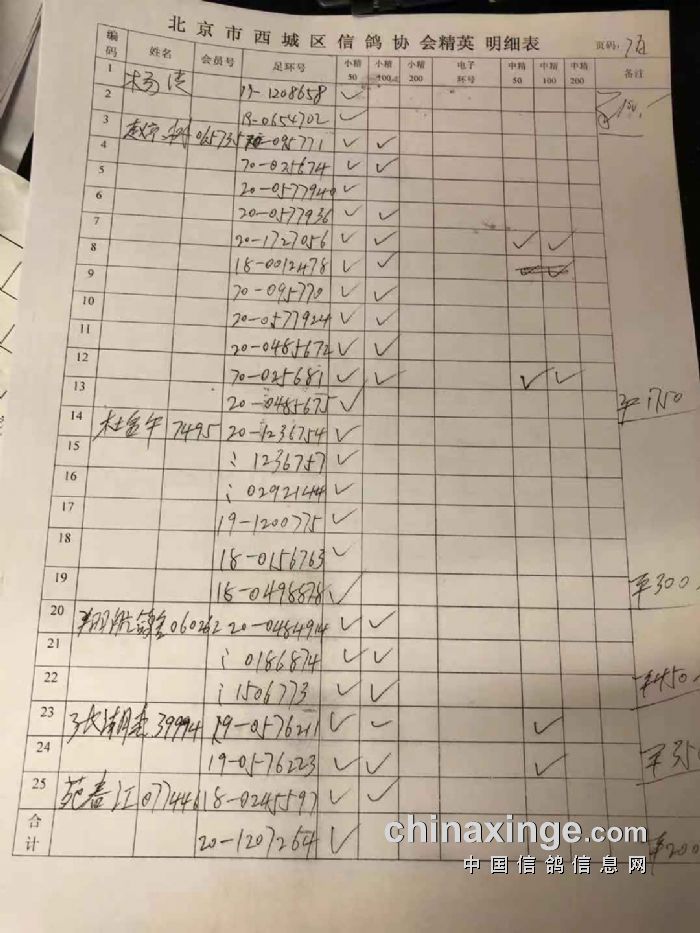 北京市西城区信鸽协会精英 明细表 页码:
编码 姓名 会员号 足环号 小精50 小精100 小精200 电子环号 中精50 中精100 中精200 备注
1
19-1208658 ✓
2
19-0654702 ✓
3
065735 20-095771 ✓ ✓
4
20-025674 ✓ ✓
5
20-0577940 ✓
6
20-0577936 ✓ ✓
7
20-1727056 ✓ ✓ ✓ ✓
8
18-0012478 ✓ ✓
9
20-095770 ✓ ✓
10
20-0577924 ✓ ✓
11
20-0485672 ✓ ✓
12
20-025681 ✓ ✓ ✓ ✓
13
20-0485675 ✓ 1750
14
杜金午 7495 20-1236754 ✓
15
1236757 ✓
16
0292144 ✓
17
19-1200775 ✓
18
18-0156763 ✓
19
18-0498878 ✓ ¥300
20
060262 20-0484914 ✓ ✓
21
0186874 ✓ ✓
22
1506773 ✓ ✓ ¥450
23
39994 19-0576211 ✓ ✓ ✓
24
19-0576223 ✓ ✓ ✓ ¥350
25
苑春江 077446 18-0245597 ✓ ✓
合计
20-1207264 ✓ ¥200
chinaxinge.com
中国信鸽信息网